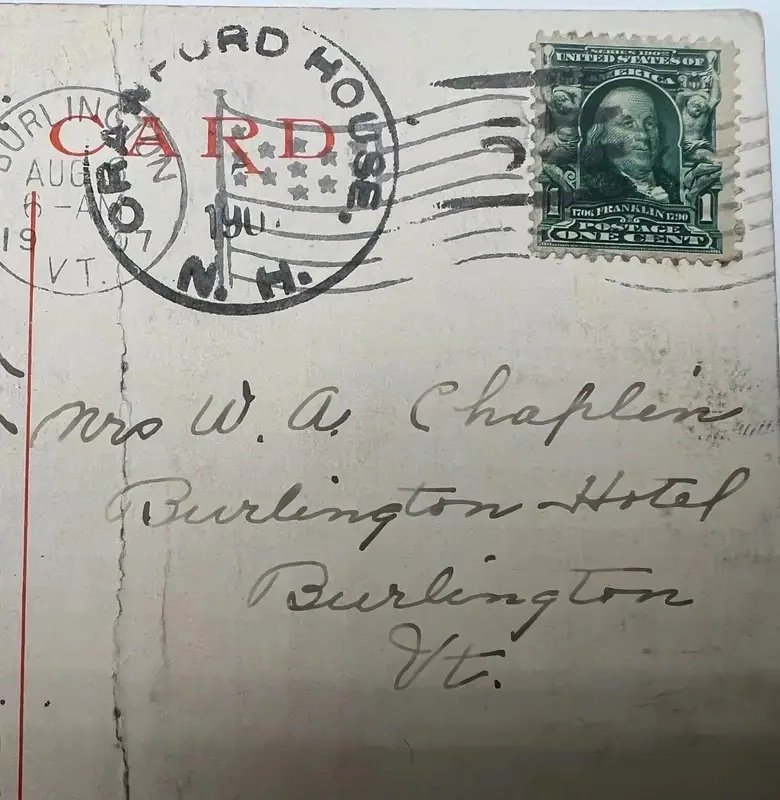 CRAWFORD HOUSE.
N. H.
BURLINGTON
AUG
6-AM
19 07
VT.
CARD
SERIES 1902
UNITED STATES OF
AMERICA
1 1
1706 FRANKLIN 1790
POSTAGE
ONE CENT
Mrs W. A. Chaplin
Burlington Hotel
Burlington
Vt.